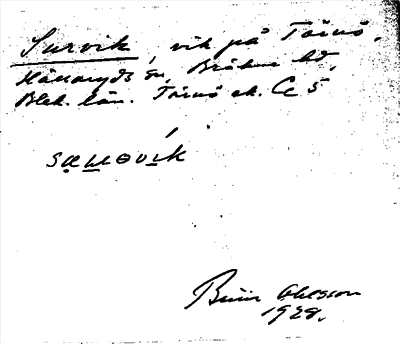 Survik, vik på Tärnö,
Hällaryds sn, Bräkne hd,
Blek. län. Tärnö ek. C 5
Ohlsson
1928.